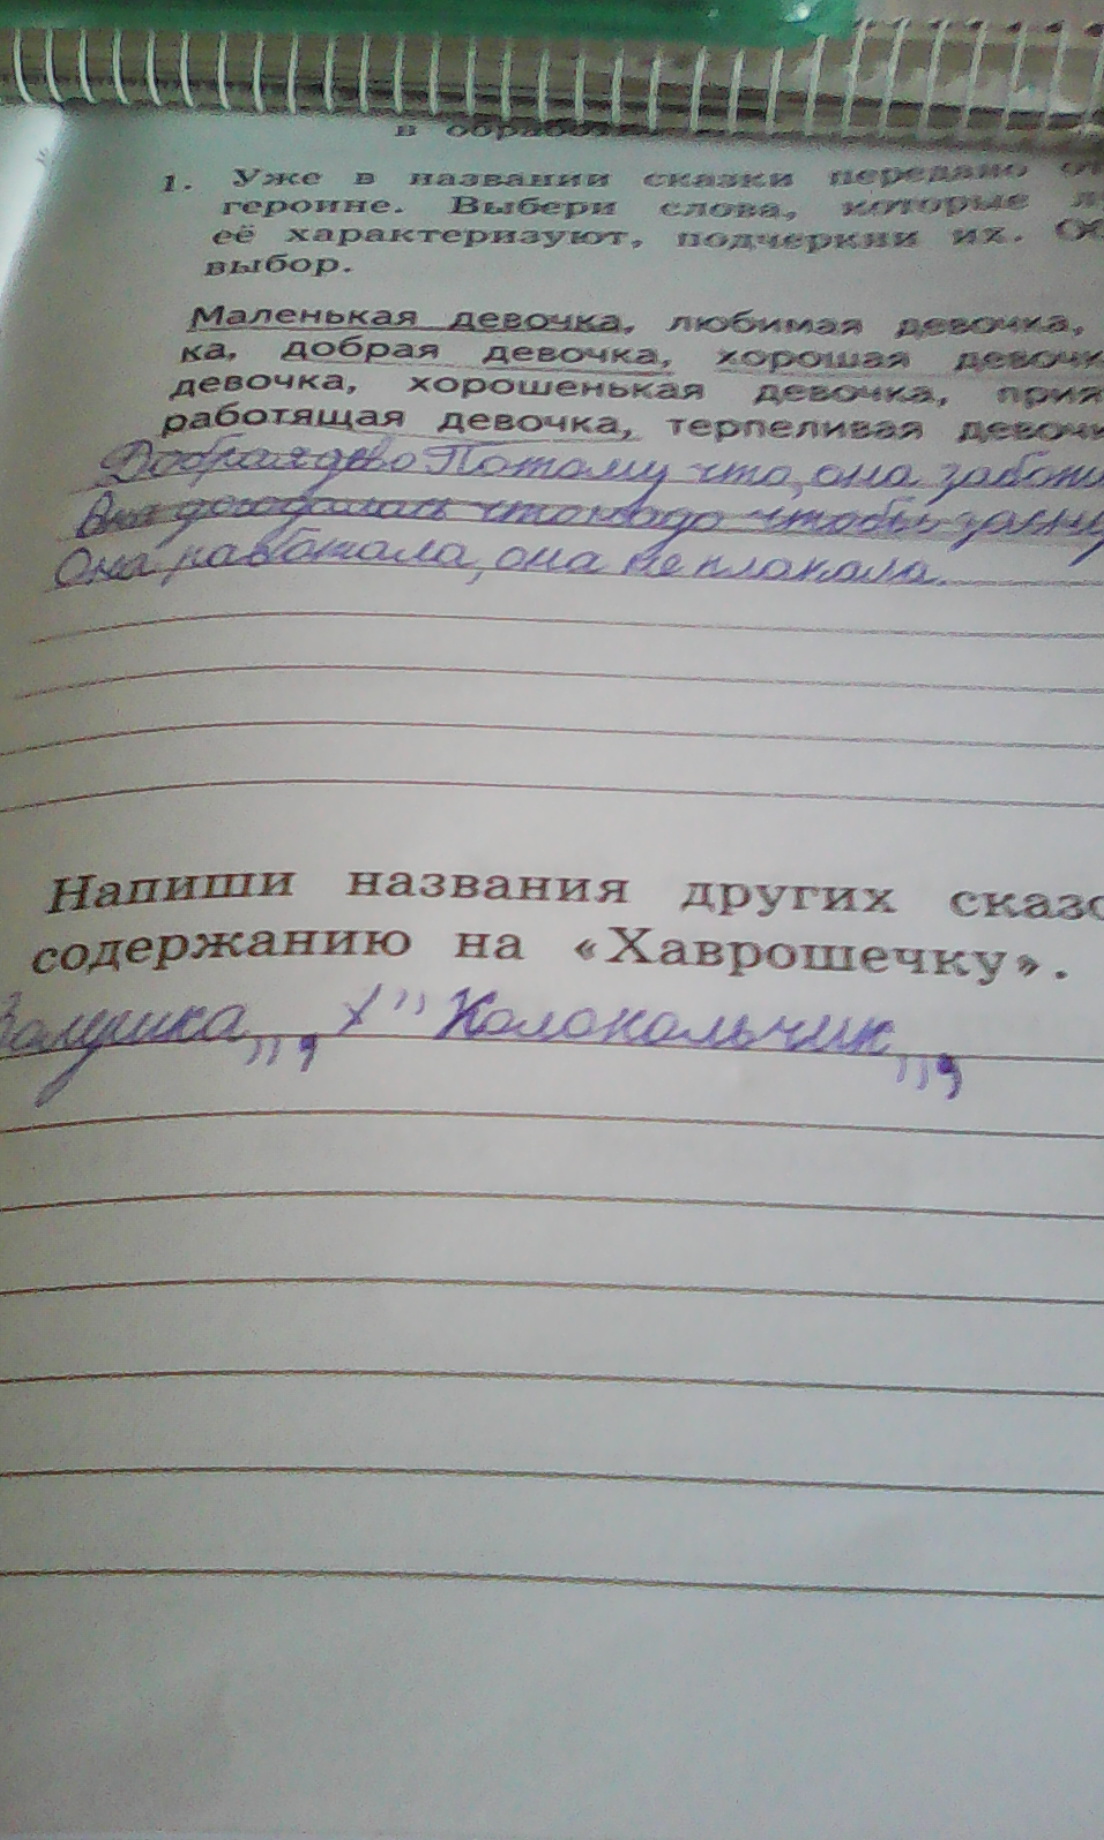 в обработ
1. Уже в названии сказки передано от
героине. Выбери слова, которые л
её характеризуют, подчеркни их. Об
выбор.
Маленькая девочка, любимая девочка,
ка, добрая девочка, хорошая девочк
девочка, хорошенькая девочка, прия
работящая девочка, терпеливая девочк
Добрая Потому что, она заботи
Она работала, она не плакала.
Напиши названия других сказо
содержанию на «Хаврошечку».
Золушка,,, "Колокольчик,,,